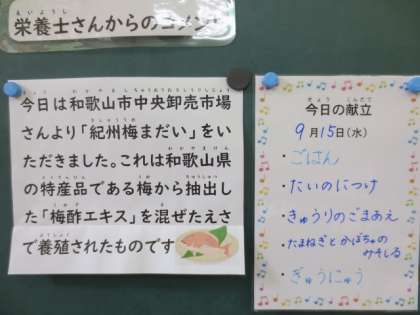 栄養士さんからのコメント
今日は和歌山市中央卸売市場
さんより「紀州梅まだい」をい
ただきました。これは和歌山県
の特産品である梅から抽出し
た「梅酢エキス」を混ぜたえさ
で養殖されたものです
今日の献立
9月15日(水)
・ごはん
・たいのにつけ
・きゅうりのごまあえ
・たまねぎとかぼちゃの
みそしる
・ぎゅうにゅう